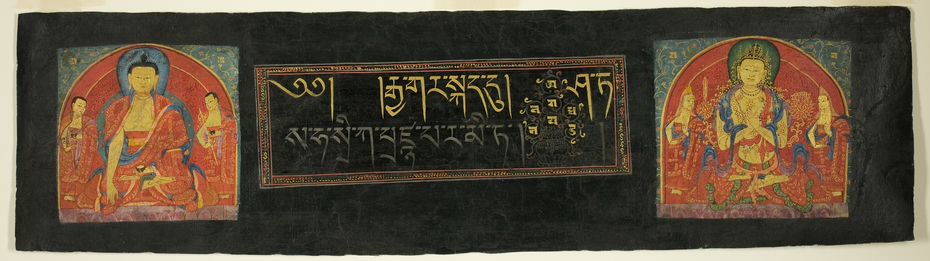 ༄༅༅། །རྒྱ་གར་སྐད་དུ། ཤ་ཏ
ས་ཧ་སྲི་ཀ་པྲཛྙཱ་པ་ར་མི་ཏ